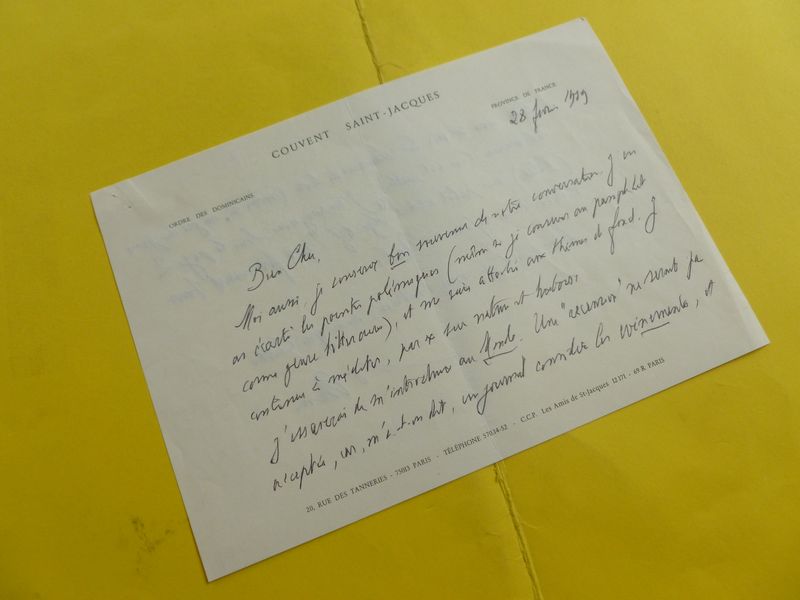 COUVENT SAINT-JACQUES
ORDRE DES DOMINICAINS
PROVINCE DE FRANCE
28 février 1979
Bien Cher,
Moi aussi, je conserve bon souvenir de notre conversation. J'en
ai écarté les pointes polémiques (même si je consens au pamphlet
comme genre littéraire), et me suis attaché aux thèmes de fond. J
continue à méditer, par ex sur nature et
J'essaierai de m'introduire au Monde. Une "recension" ne serait pas
acceptée, car, m'a-t-on dit, un journal considère les événements, et
20, RUE DES TANNERIES - 75013 PARIS - TÉLÉPHONE 57034-52 - C.C.P. Les Amis de St-Jacques 12 171 - 69 R PARIS